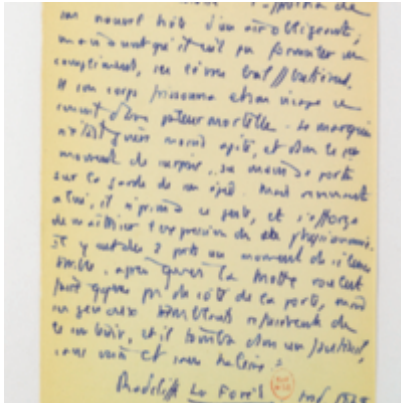 un nouvel hôte d'un air obligeant;
mais avant qu'il eût pu formuler un
compliment, ses lèvres
Son corps frissonna et son visage se
couvrit d'une pâleur mortelle. Le marquis
n'était guère moins agité, et dans le 1er
moment de surprise, sa main se porta
sur la garde de son épée. Mais revenant
à lui, il réprima ce geste, et s'efforça
de maîtriser l'expression de sa physionomie.
Il y eut des 2 parts un moment de silence
après quoi La Motte voulut
faire quelques pas du côté de la porte, mais
ses genoux tremblants refusèrent de
le soutenir, et il tomba dans un fauteuil,
sans voix et sans haleine.
Radcliffe La Forêt